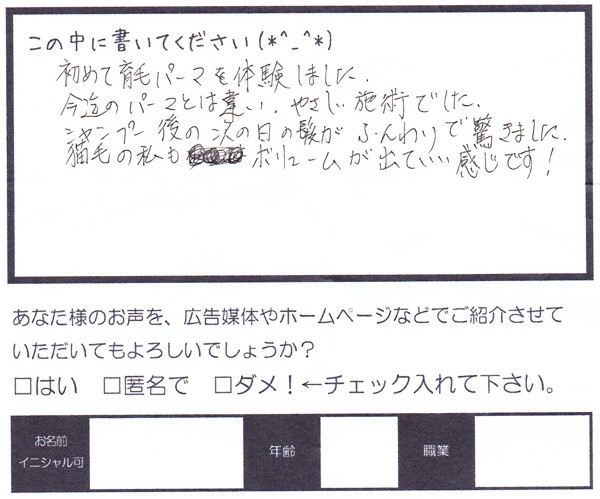 この中に書いてください(*^_^*)
初めて育毛パーマを体験しました.
今迄のパーマとは違い、やさしい施術でした.
シャンプー後の次の日の髪がふんわりで驚きました.
猫毛の私もボリュームが出ていい感じです!
あなた様のお声を、広告媒体やホームページなどでご紹介させて
いただいてもよろしいでしょうか?
□はい □匿名で □ダメ!←チェック入れて下さい。
お名前
イニシャル可
年齢
職業